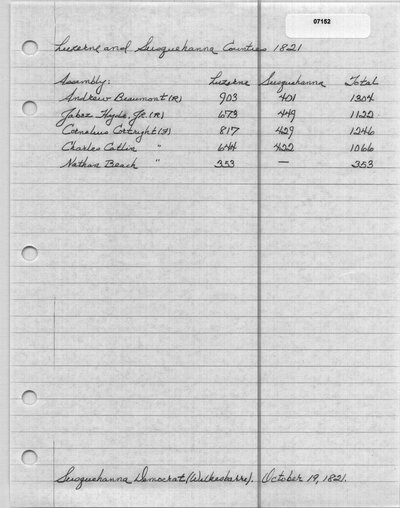 07152
Luzerne and Susquehanna Counties 1821
Assembly: Luzerne Susquehanna Total
Andrew Beaumont (R) 903 401 1304
Jabez Hyde, Jr. (R) 673 449 1122
Cornelius Cortright (F) 817 429 1246
Charles Catlin " 644 422 1066
Nathan Beach " 353 — 353
Susquehanna Democrat (Wilkesbarre). October 19, 1821.